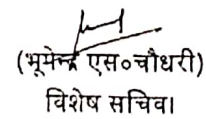 (भूमेन्द्र एस०चौधरी)
विशेष सचिव।